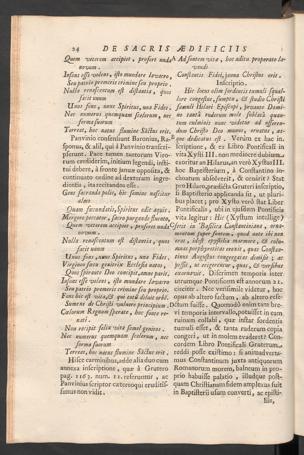 24 DE SACRIS ÆDIFICIIS
Quem veterem accipiet, proferet unda
novum.
Insons esse volens, isto mundare lavacro,
Seu patrio premeris crimine seu proprio.
Nulla renascentum est distantia, quos
facit unum
Unus fons, unus Spiritus, una Fides.
Nec numerus quemquam scelerum, nec
forma suorum
Terreat, hoc natus flumine Sanctus erit.
Panvinio consentiunt Baronius, Ra-
sponus, & alii, qui à Panvinio transcri-
pserunt. Pace tamen tantorum Viro-
rum crediderim, initium legendi, insti-
tui debere, à fronte januæ oppositæ, &
continuato ordine ad dextrum ingre-
dientis, ita recitandos esse.
Gens sacranda polis, hic semine nascitur
almo
Quam fœcundatis, Spiritus edit aquis.
Mergere peccator, sacro purgande fluento.
Quem veterem accipiet, proferet unda
novum.
Nulla renascentum est distantia, quos
facit unum
Unus fons, unus Spiritus, una Fides.
Virgineo fœtu genitrix Ecclesia natos,
Quos spirante Deo concipit, amne parit.
Insons esse volens, isto mundare lavacro
Seu patrio premeris crimine seu proprio.
Fons hic est vitæ, & qui totũ diluit orbẽ.
Sumens de Christi vulnere principium
Cælorum Regnum sperate, hoc fonte re-
nati.
Non recipit felix vita semel genitos.
Nec numerus quemquam scelerum, nec
forma suorum
Terreat, hoc natus flumine Sanctus erit.
Hisce carminibus, adde alia duo cum
annexa inscriptione, quæ à Grutero
pag. 1163. num. 11. referuntur, ac
Panvinius scriptor cæteroqui eruditissi-
simus non vidit.
Ad fontem vitæ, hoc aditu properate la-
vandi
Constantis Fidei, janua Christus erit.
Inscriptio.
Hic locus olim sordentis cumuli squal-
lore congestus, sumptu, & studio Christi
famuli Hilari Episcopi, juvante Domi-
no tanta ruderum mole sublata quan-
tum culminis nunc videtur ad offeren-
dum Christo Deo munus, ornatus, at-
que dedicatus est. Verum ex hac in-
scriptione, & ex Libro Pontificali in
vita Xysti III. non mediocre dubium
exoritur an Hilarus, an verò Xystus III.
hoc Baptisterium, à Constantino in-
choatum absolverit, & ornârit? Stat
pro Hilaro, prædicta Gruteri inscriptio,
si Baptisterio applicanda sit, ut pluri-
bus placet; pro Xysto verò stat Liber
Pontificalis, ubi in ipsiusmet Pontificis
vita legitur: Hic (Xystum intellige)
fecit in Basilica Constantiniana, orna-
mentum super fontem, quod ante ibi non
erat, idest epystilia marmorea, & colum-
nas porphyreticas erexit, quas Constan-
tinus Augustus congregatas dimisit; ac
jussit, ut erigerentur, quas, & versibus
exornavit. Discrimen temporis inter
utrumque Pontificem est annorum 21.
circiter. Nec verisimile videtur, hoc
opus ab altero factum, ab altero refe-
ctum fuisse. Quomodo enim tam bre-
vi temporis intervallo, potuisset in eam
ruinam collabi, quæ instar sordentis
tumuli esset, & tanta ruderum copia
congeri, ut in molem evaderet? Con-
cordem Libro Pontificali Gruterum,
reddi posse existimo: si animadverta-
mus Constantinum juxta antiquorum
Romanorum morem, balneum in pro-
prio habuisse palatio, illudque post-
quam Christianam fidem amplexus fuit
in Baptisterii usum converti, ac episti-
liis,